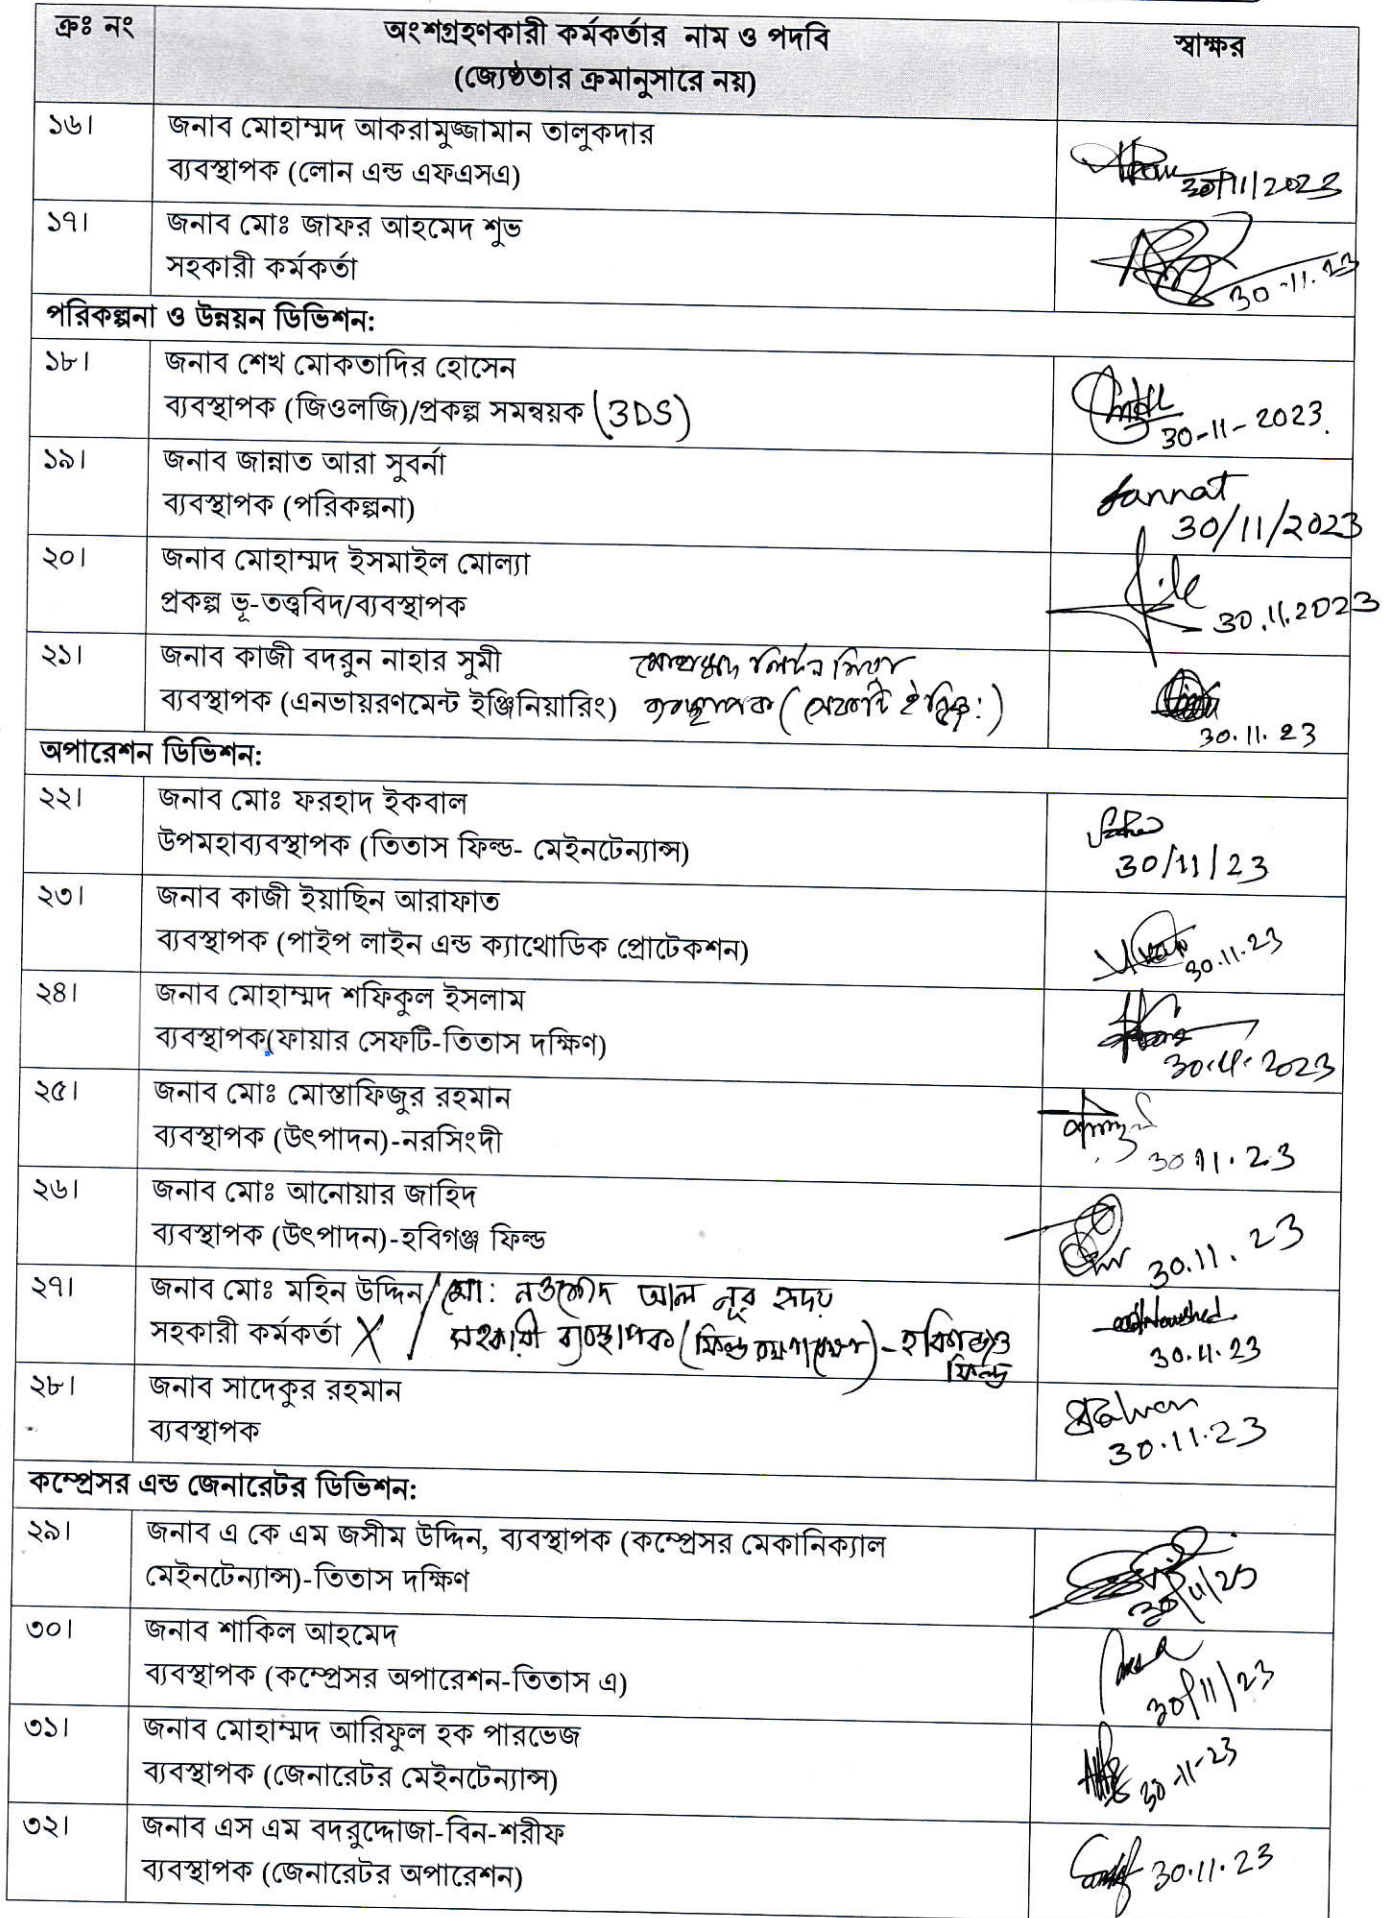 ক্রঃ নং অংশগ্রহণকারী কর্মকর্তার নাম ও পদবি স্বাক্ষর
(জ্যেষ্ঠতার ক্রমানুসারে নয়)
১৬। জনাব মোহাম্মদ আকরামুজ্জামান তালুকদার
ব্যবস্থাপক (লোন এন্ড এফএসএ) 30/11/2023
১৭। জনাব মোঃ জাফর আহমেদ শুভ
সহকারী কর্মকর্তা 30-11.23
পরিকল্পনা ও উন্নয়ন ডিভিশন:
১৮। জনাব শেখ মোকতাদির হোসেন
ব্যবস্থাপক (জিওলজি)/প্রকল্প সমন্বয়ক (3DS) 30-11-2023.
১৯। জনাব জান্নাত আরা সুবর্না Jannat
ব্যবস্থাপক (পরিকল্পনা) 30/11/2023
২০। জনাব মোহাম্মদ ইসমাইল মোল্যা
প্রকল্প ভূ-তত্ত্ববিদ/ব্যবস্থাপক 30.11.2023
২১। জনাব কাজী বদরুন নাহার সুমী মোহাম্মদ লিটন মিয়া
ব্যবস্থাপক (এনভায়রণমেন্ট ইঞ্জিনিয়ারিং) ব্যবস্থাপক (সেফটি ইঞ্জিঃ)
30.11.23
অপারেশন ডিভিশন:
২২। জনাব মোঃ ফরহাদ ইকবাল
উপমহাব্যবস্থাপক (তিতাস ফিল্ড- মেইনটেন্যান্স) 30/11/23
২৩। জনাব কাজী ইয়াছিন আরাফাত
ব্যবস্থাপক (পাইপ লাইন এন্ড ক্যাথোডিক প্রোটেকশন) 30.11.23
২৪। জনাব মোহাম্মদ শফিকুল ইসলাম
ব্যবস্থাপক(ফায়ার সেফটি-তিতাস দক্ষিণ) 30.11.2023
২৫। জনাব মোঃ মোস্তাফিজুর রহমান
ব্যবস্থাপক (উৎপাদন)-নরসিংদী 30.11.23
২৬। জনাব মোঃ আনোয়ার জাহিদ
ব্যবস্থাপক (উৎপাদন)-হবিগঞ্জ ফিল্ড 30.11.23
২৭। জনাব মোঃ মহিন উদ্দিন/মো: নওশেদ আল নূর হৃদয়
সহকারী কর্মকর্তা X / সহকারী ব্যবস্থাপক (ফিল্ড রক্ষণাবেক্ষণ)-হবিগঞ্জ 30.11.23
ফিল্ড
২৮। জনাব সাদেকুর রহমান
ব্যবস্থাপক 30.11.23
কম্প্রেসর এন্ড জেনারেটর ডিভিশন:
২৯। জনাব এ কে এম জসীম উদ্দিন, ব্যবস্থাপক (কম্প্রেসর মেকানিক্যাল
মেইনটেন্যান্স)-তিতাস দক্ষিণ 30/11/23
৩০। জনাব শাকিল আহমেদ
ব্যবস্থাপক (কম্প্রেসর অপারেশন-তিতাস এ) 30/11/23
৩১। জনাব মোহাম্মদ আরিফুল হক পারভেজ
ব্যবস্থাপক (জেনারেটর মেইনটেন্যান্স) 30-11-23
৩২। জনাব এস এম বদরুদ্দোজা-বিন-শরীফ
ব্যবস্থাপক (জেনারেটর অপারেশন) 30.11.23